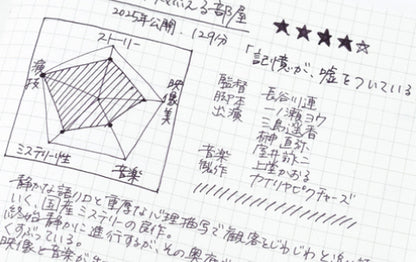 える部屋
2025年公開 129分
★★★★☆
「記憶が、嘘をついている
ストーリー
演技
映像美
ミステリー性
音楽
監督 長谷川連
脚本 一ノ瀬ヨウ
出演 三島遥香
柳直弥
窪井計二
上埜かおる
音楽
製作 カナリヤピクチャーズ
静かな語り口と重厚な心理描写で観客をじわじわと追い
いく、国産ミステリーの良作。
終始静かに進行するが、その奥
くすぶっている。
映像と音楽が